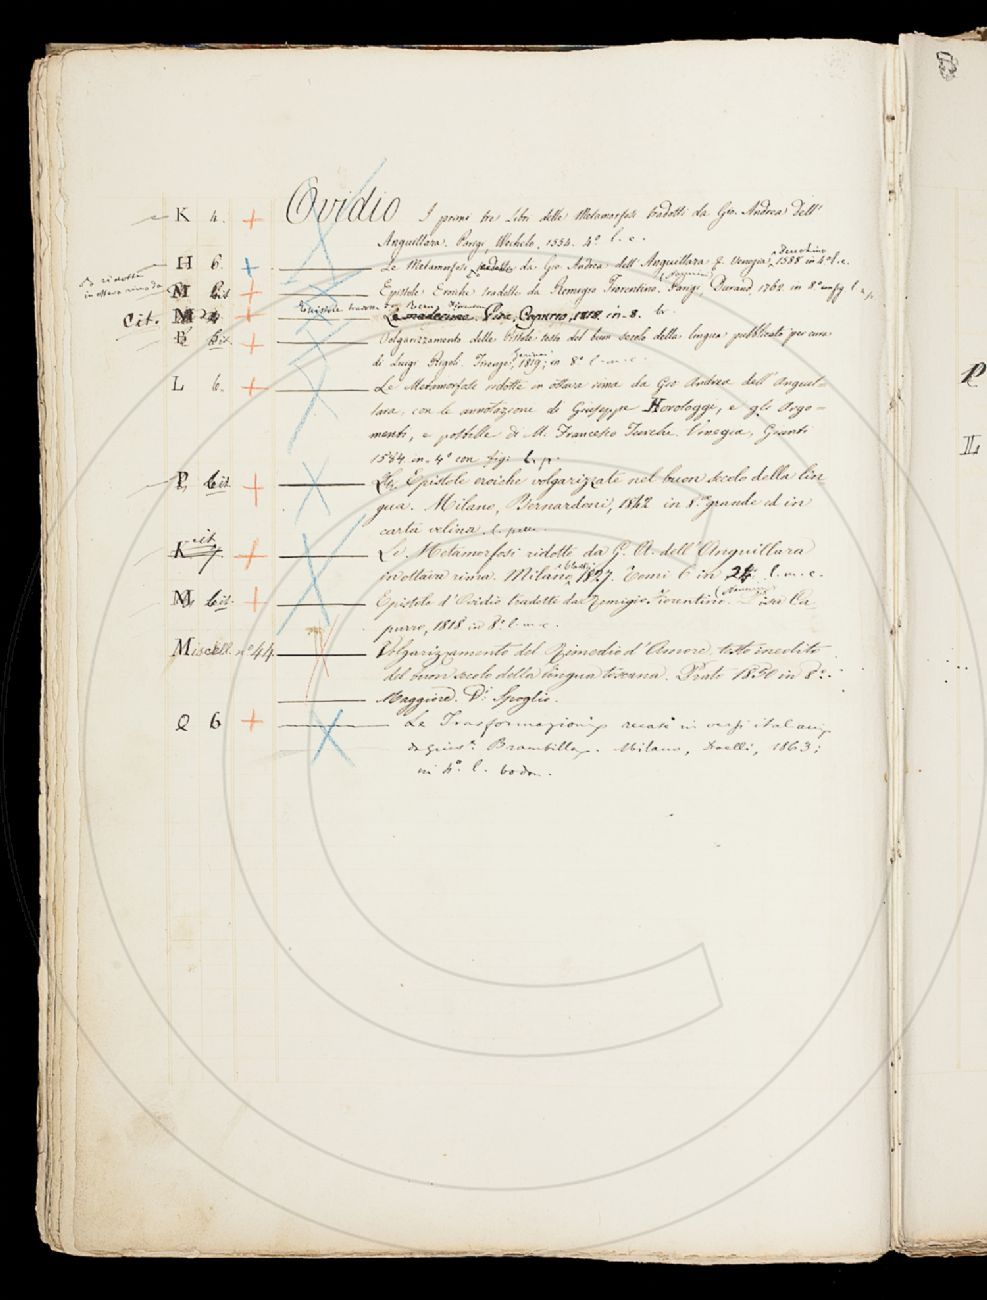 K 4. + Ovidio I primi tre Libri delle Metamorfosi tradotti da Gio. Andrea Dell'
Anguillara. Parigi, Wechelo, 1554. 4º l. e.
H 6 + Le Metamorfosi ridotte da Gio Andrea dell'Anguillara Venezia, 1588 in 4º l. e.
in ottava rima da
M bis + Epistole Eroiche tradotte da Remigio Fiorentino. Parigi, Durand, 1762 in 8º
Cit. M + Epistole Le medesime. Pisa, Capurro, 1818. in-8.
bis. + Volgarizzamento delle Pistole testo del buon secolo della lingua pubblicato per cura
di Luigi Rigoli. Firenze, 1819; in 8º l. m. e.
L 6. + Le Metamorfosi ridotte in ottava rima da Gio Andrea dell'Anguil-
lara, con le annotazione di Giuseppe Horologgi, e gli Argo-
menti, e postille di M. Francesco Turchi. Vinegia, Giunti
1584 in 4º con fig. l. p.
P bis + Epistole eroiche volgarizzate nel buon secolo della lin
gua. Milano, Bernardoni, 1842 in 8.º grande ed in
carta velina.
K + Le Metamorfosi ridotte da G. A. dell'Anguillara
in ottava rima. Milano, 1827. Tomi 6 in 24º l. m. e.
M bis. + Epistole d'Ovidio tradotte da Remigio Fiorentino. Pisa Ca
purro, 1818 in 8º l. m. e.
Miscell. nº 44 Volgarizzamento del Rimedio d'Amore, testo inedito
del buon secolo della lingua toscana. Prato 1850 in 8º
Maggiore. Di Spoglio.
Q 6 + Le Trasformazioni recate in versi italiani
da Giusº. Brambilla. Milano, Daelli, 1863;
in 4º. l. bodon.
P
L